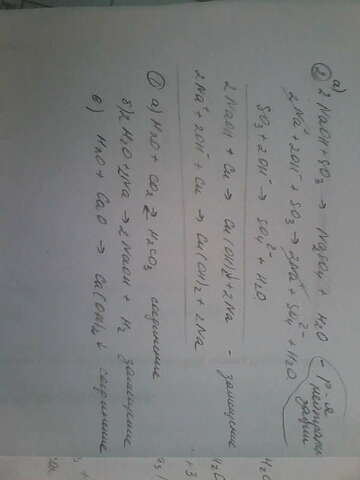 а)
② 2NaOH + SO₃ → Na₂SO₄ + H₂O - р-я нейтрали зации
2Na⁺ + 2OH⁻ + SO₃ → 2Na⁺ + SO₄²⁻ + H₂O
SO₃ + 2OH⁻ → SO₄²⁻ + H₂O
2NaOH + Cu → Cu(OH)₂↓ + 2Na - замещение
2Na⁺ + 2OH⁻ + Cu → Cu(OH)₂ + 2Na
① а) H₂O + CO₂ ⇄ H₂CO₃ соединение
б) 2H₂O + 2Na → 2NaOH + H₂ замещение
в) H₂O + CaO → Ca(OH)₂↓ соединение